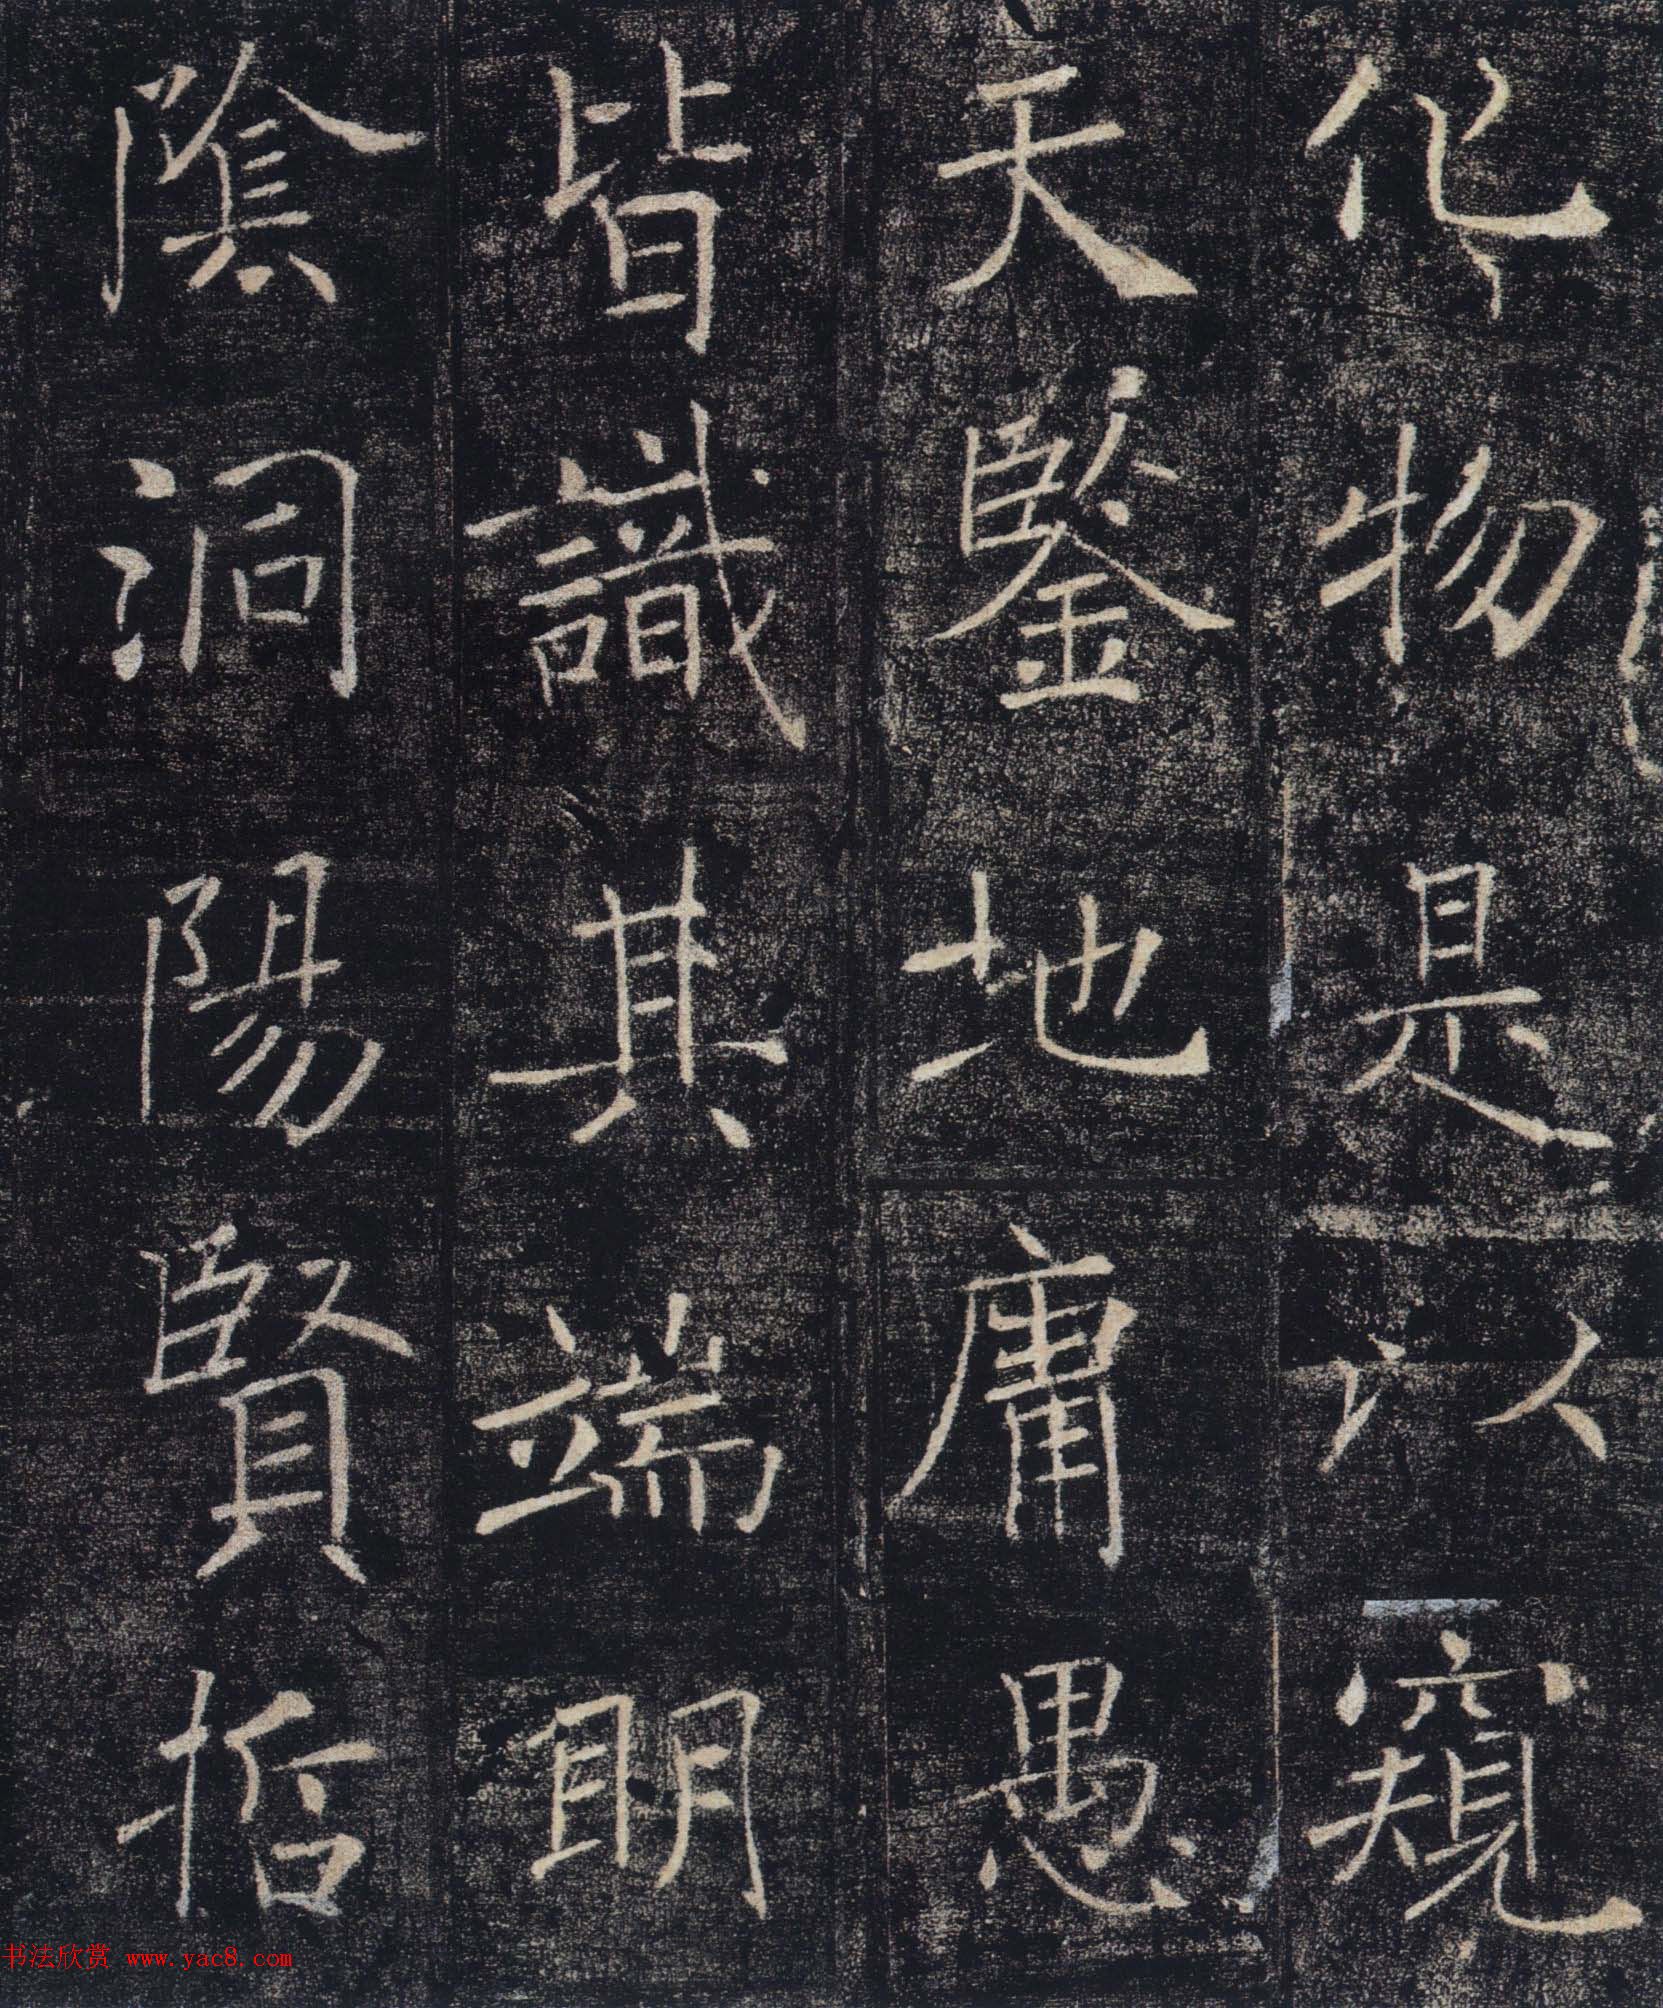 化物是以窺
天鑒地庸愚
皆識其端明
陰洞陽賢哲
书法欣赏 www.yac8.com